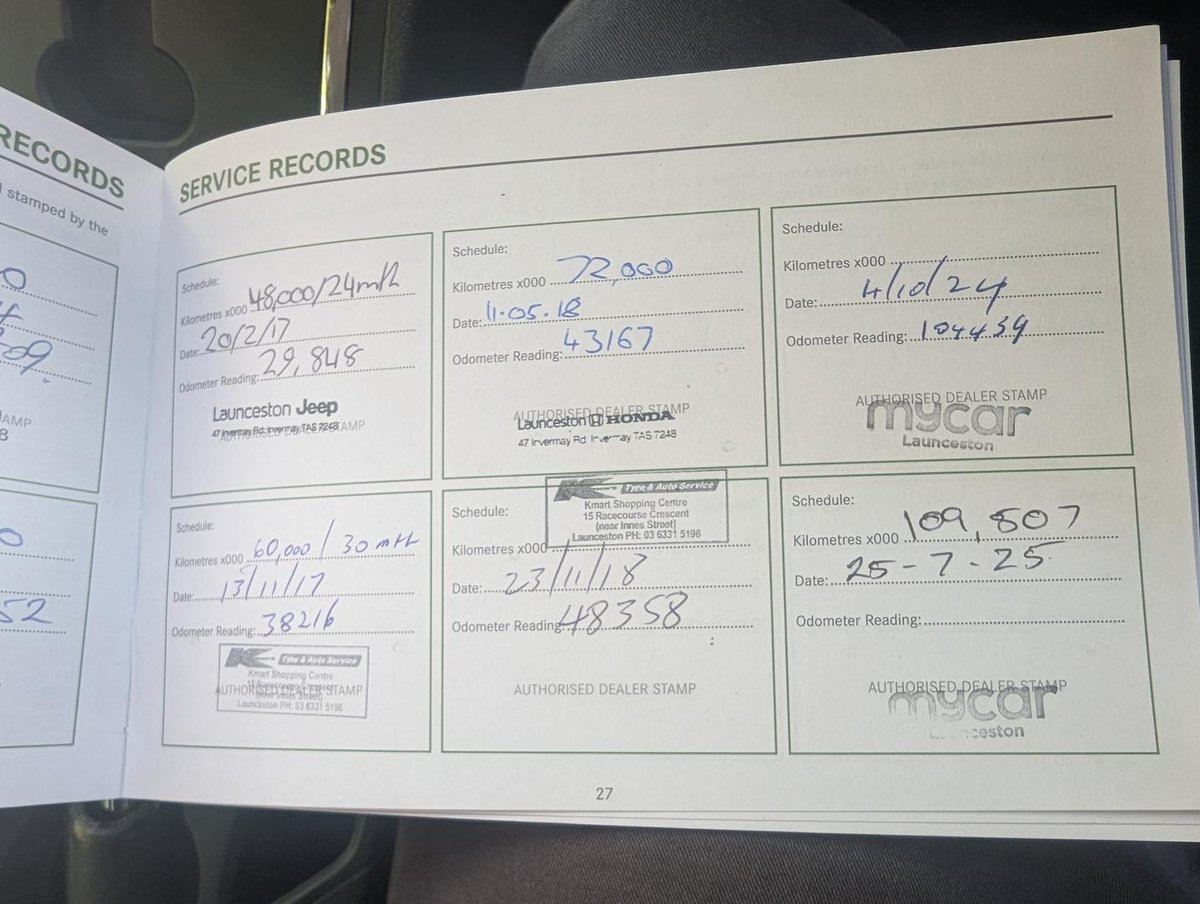 RECORDS
stamped by the
0
09.
AMP
0
52
SERVICE RECORDS
Schedule:
Kilometres x000 48,000/24mth
Date: 20/2/17
Odometer Reading: 29,848
Launceston Jeep
47 Invermay Rd Invermay TAS 7248
AUTHORISED DEALER STAMP
Schedule:
Kilometres x000 72,000
Date: 11.05.18
Odometer Reading: 43167
AUTHORISED DEALER STAMP
Launceston HONDA
47 Invermay Rd Invermay TAS 7248
Schedule:
Kilometres x000
Date: 4/10/24
Odometer Reading: 104439
AUTHORISED DEALER STAMP
mycar
Launceston
Schedule:
Kilometres x000 60,000/30mth
Date: 13/11/17
Odometer Reading: 38216
K Tyre & Auto Service
Kmart Shopping Centre
15 Racecourse Crescent
(near Innes Street)
Launceston PH: 03 6331 5196
AUTHORISED DEALER STAMP
K Tyre & Auto Service
Kmart Shopping Centre
15 Racecourse Crescent
(near Innes Street)
Launceston PH: 03 6331 5196
Schedule:
Kilometres x000
Date: 23/11/18
Odometer Reading: 48358
AUTHORISED DEALER STAMP
Schedule:
Kilometres x000 109,807
Date: 25-7-25
Odometer Reading:
AUTHORISED DEALER STAMP
mycar
ceston
27